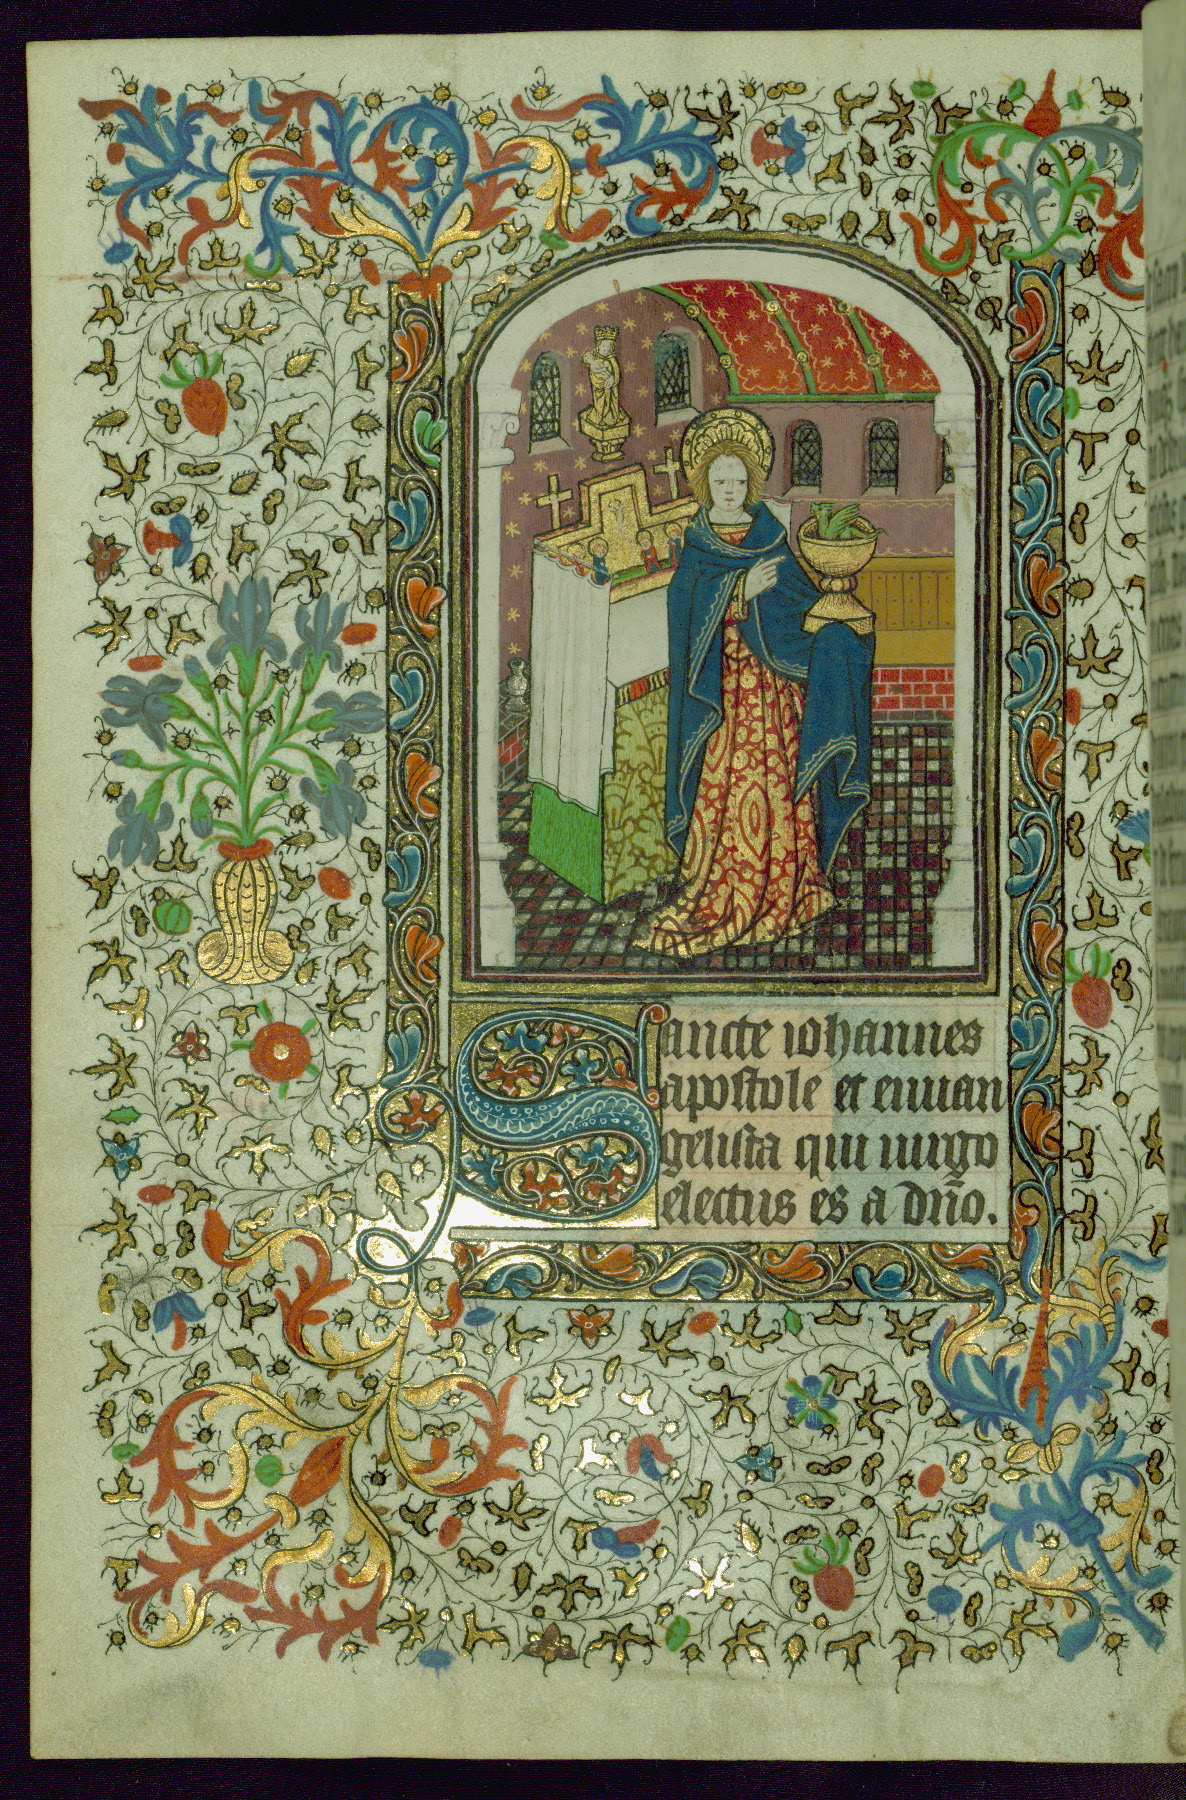 Sancte iohannes
apostole et euuan
gelista qui uirgo
electus es a dño.